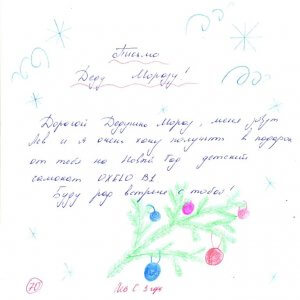 Письмо
Деду Морозу!
Дорогой Дедушка Мороз, меня зовут
Лев и я очень хочу получить в подарок
от тебя на Новый Год детский
самокат OXELO B1
Буду рад встрече с тобой!
Лев С 3 года